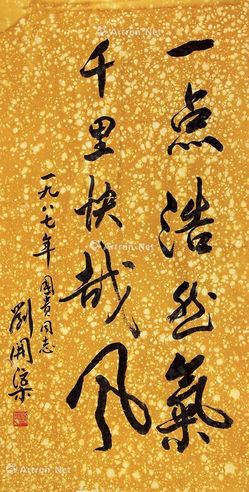 一点浩然氣
千里快哉风
一九八七年 国贵同志
劉開渠
Artron.Net
Artron.Net
Artron.Net